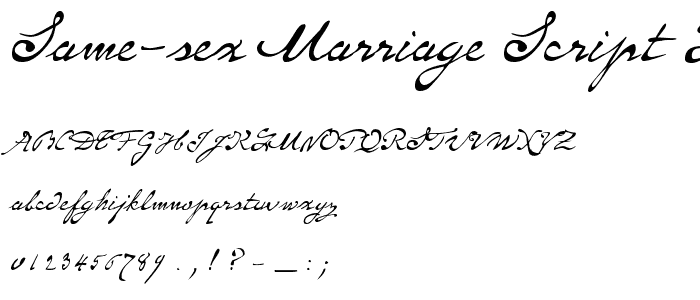 Same-sex Marriage Script
ABCDEFGHIJKLMNOPQRSTUVWXYZ
abcdefghijklmnopqrstuvwxyz
0123456789 . , ! ? - _ : ;